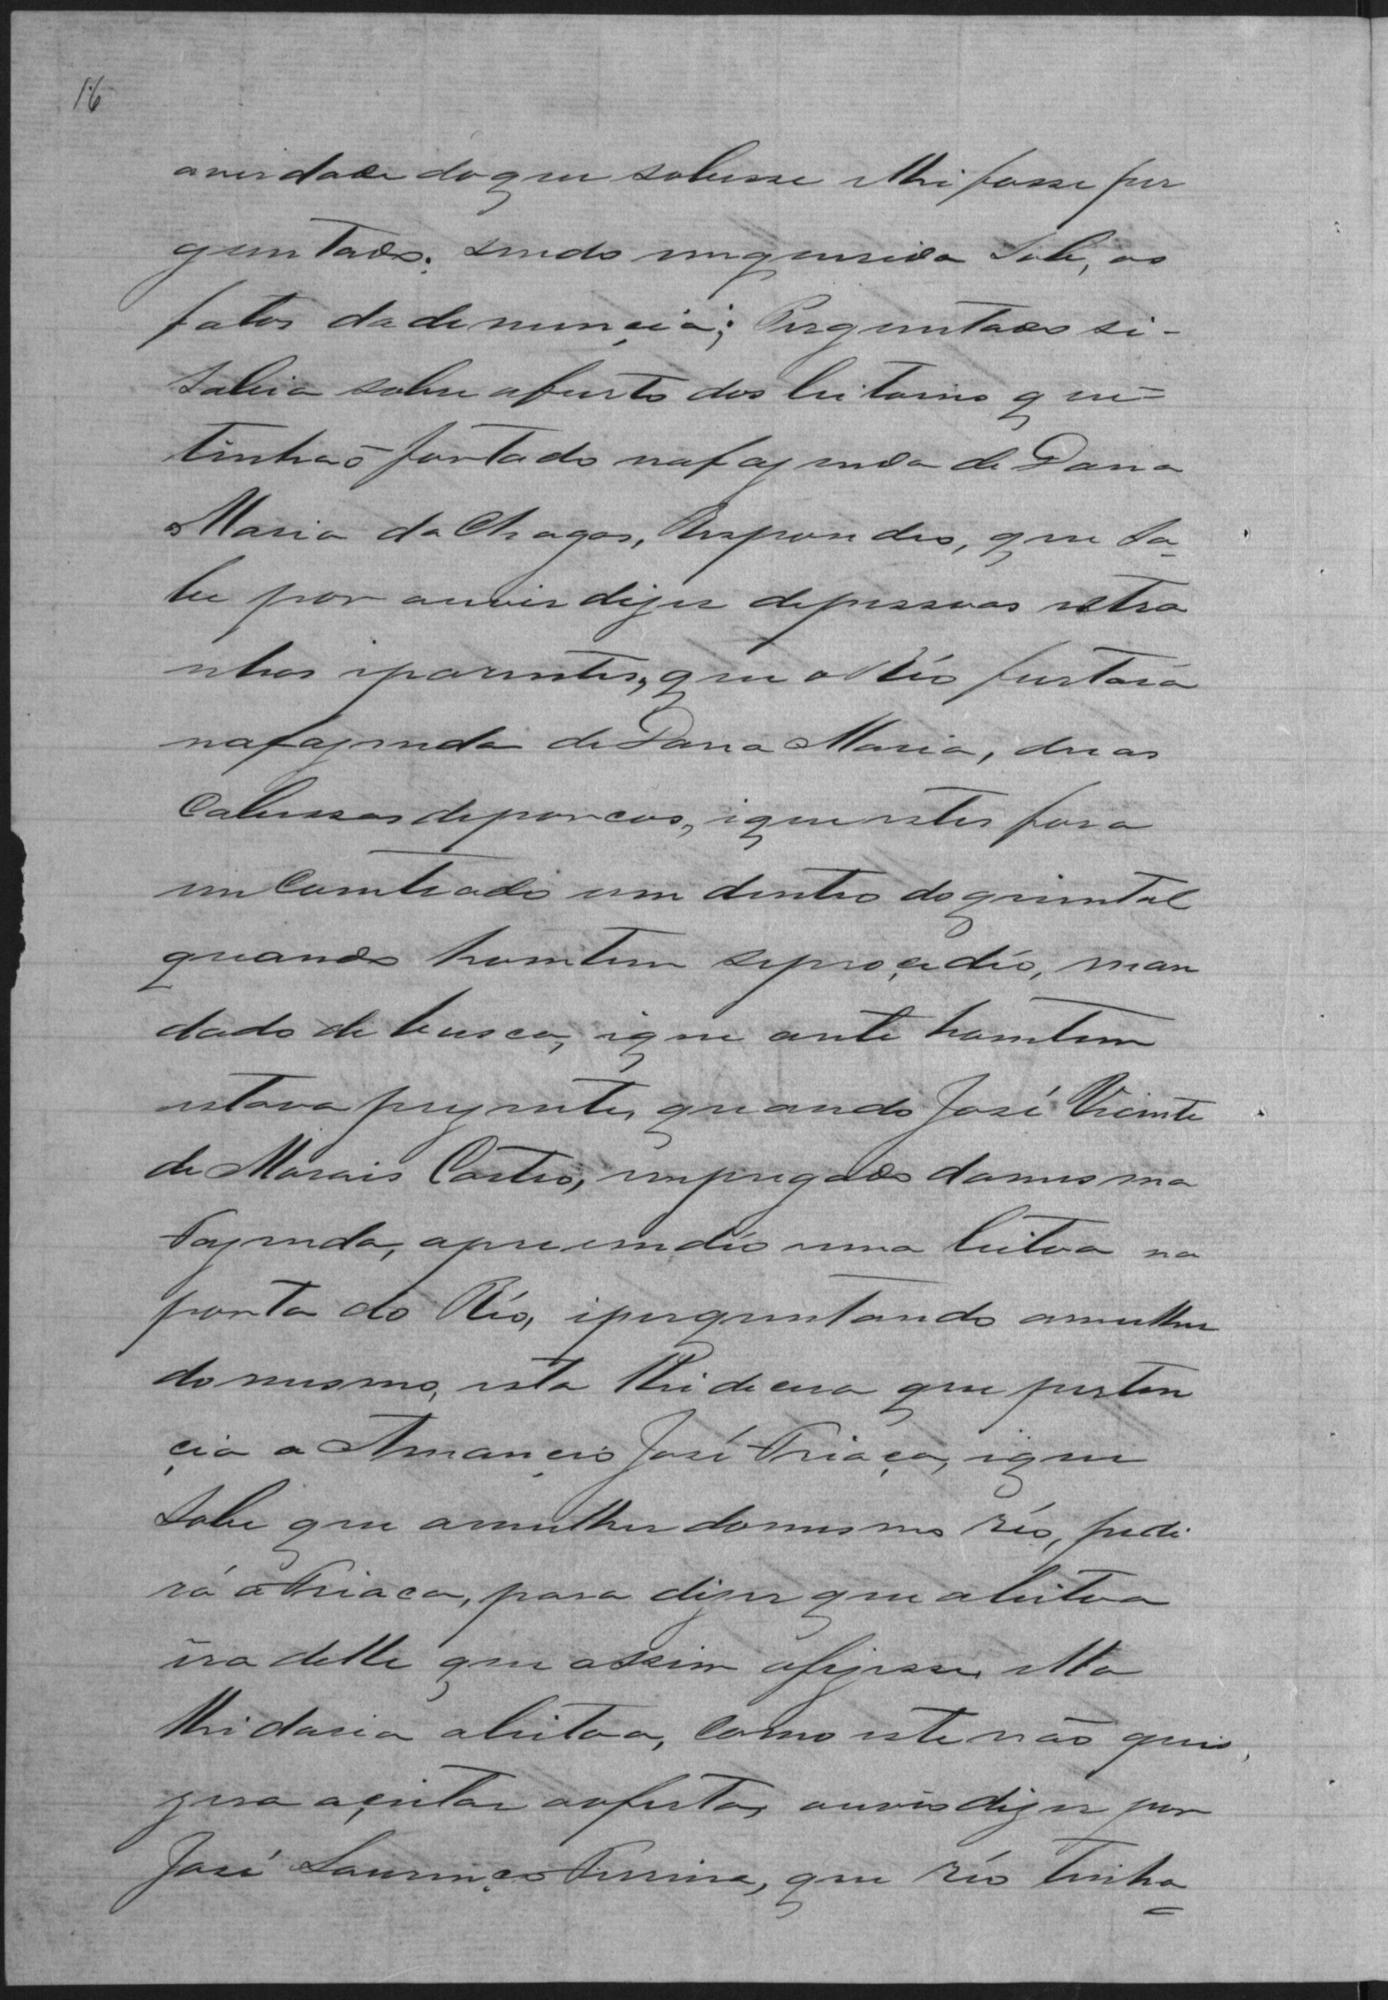 16
averdade do que soubesse e lhe fosse per
guntado; sendo inquerida sobe, os
fatos da denuncia; Perguntado si-
sabia sobre ofurto dos leitoins que=
tinhão furtado nafazenda de Dona
Maria da Chagas, Respondeo, que sa-
be por ouvir dizer depessoas estra
nhas iparentes, que o Réo furtará
nafazenda de Dona Maria, duas
Cabessas deporcos, i que estes fora
in Comtrado um dentro do quintal
quando homtem seprocedio, man
dado de busca, ique ante homtem
estava prezente, quando José Vicente
de Morais Castro, impregado damesma
Fazenda, apreemdio uma leitoa na
porta do Réo, i perguntando amulher
do mesmo, esta lhi dicera que perten
cia a Amancio José Friaça, ique
sabe que amulher domesmo réo, pedi
rá a Friaca, para dizer que a leitoa
éra delle que assim ofizesse, ella
lhi daria aleitoa, como este não quis,
zera aceitar aoferta, ouvio dizer por
José Lourenço Ferreira, que réo tinha=